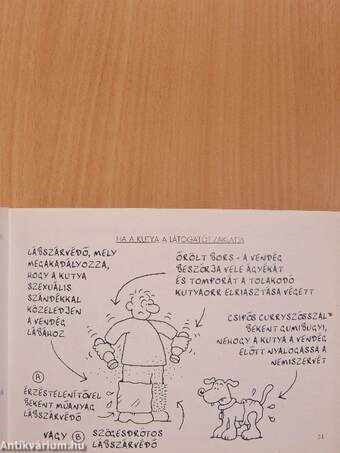 HA A KUTYA A LÁTOGATÓT ZAKLATJA
LÁBSZÁRVÉDŐ, MELY
MEGAKADÁLYOZZA,
HOGY A KUTYA
SZEXUÁLIS
SZÁNDÉKKAL
KÖZELEDJEN
A VENDÉG
LÁBÁHOZ
ŐRÖLT BORS - A VENDÉG
BESZÓRJA VELE ÁGYÉKÁT
ÉS TOMPORÁT A TOLAKODÓ
KUTYAORR ELRIASZTÁSA VÉGETT
CSIPŐS CURRYSZÓSSZAL*
BEKENT GUMIBUGYI,
NEHOGY A KUTYA A VENDÉG
ELŐTT NYALOGASSA A
NEMISZERVÉT
A
ÉRZÉSTELENITŐVEL
BEKENT MŰANYAG
LÁBSZÁRVÉDŐ
VAGY B SZÖGESDRÓTOS
LÁBSZÁRVÉDŐ
31
Antikvárium.hu